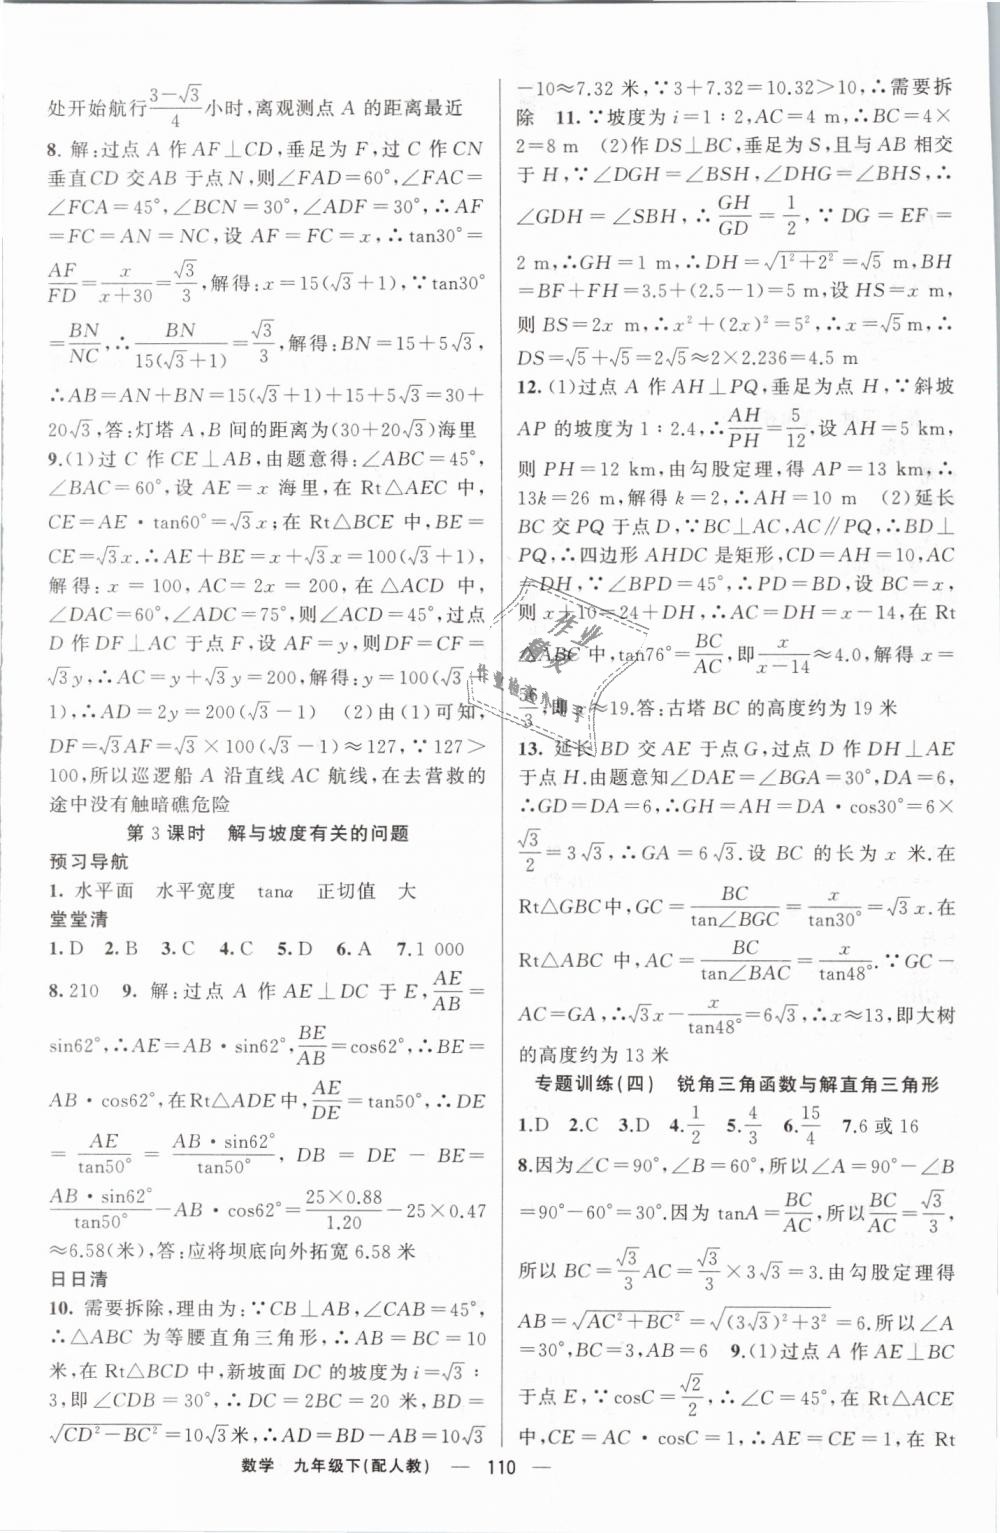 处开始航行(3-√3)/4小时,离观测点 A 的距离最近
8. 解:过点 A 作 AF⊥CD,垂足为 F,过 C 作 CN
垂直CD 交AB 于点N,则∠FAD=60°,∠FAC=
∠FCA=45°,∠BCN=30°,∠ADF=30°,∴AF
=FC=AN=NC,设 AF=FC=x,∴tan30°=
AF/FD=x/(x+30)=√3/3,解得:x=15(√3+1),∵tan30°
=BN/NC,∴BN/(15(√3+1))=√3/3,解得:BN=15+5√3,
∴AB=AN+BN=15(√3+1)+15+5√3=30+
20√3,答:灯塔 A,B 间的距离为(30+20√3)海里
9.(1)过 C 作 CE⊥AB,由题意得:∠ABC=45°,
∠BAC=60°,设 AE=x 海里,在 Rt△AEC 中,
CE=AE·tan60°=√3x;在 Rt△BCE 中,BE=
CE=√3x.∴AE+BE=x+√3x=100(√3+1),
解得:x=100,AC=2x=200,在△ACD 中,
∠DAC=60°,∠ADC=75°,则∠ACD=45°,过点
D 作 DF⊥AC 于点 F,设 AF=y,则DF=CF=
√3y,∴AC=y+√3y=200,解得:y=100(√3-
1),∴AD=2y=200(√3-1) (2)由(1)可知,
DF=√3AF=√3×100(√3-1)≈127,∵127>
100,所以巡逻船 A 沿直线 AC 航线,在去营救的
途中没有触暗礁危险
第 3 课时 解与坡度有关的问题
预习导航
1. 水平面 水平宽度 tanα 正切值 大
堂堂清
1.D 2.B 3.C 4.C 5.D 6.A 7.1 000
8.210 9. 解:过点 A 作 AE⊥DC 于 E,AE/AB=
sin62°,∴AE=AB·sin62°,BE/AB=cos62°,∴BE=
AB·cos62°,在Rt△ADE中,AE/DE=tan50°,∴DE
=AE/tan50°=(AB·sin62°)/tan50°, DB = DE - BE=
(AB·sin62°)/tan50°-AB·cos62°=(25×0.88)/1.20-25×0.47
≈6.58(米),答:应将坝底向外拓宽 6.58 米
日日清
10. 需要拆除,理由为:∵CB⊥AB,∠CAB=45°,
∴△ABC 为等腰直角三角形,∴AB=BC=10
米,在 Rt△BCD 中,新坡面 DC 的坡度为 i=√3:
3,即∠CDB=30°,∴DC=2BC=20 米,BD=
√(CD²-BC²)=10√3米,∴AD=BD-AB=10√3
-10≈7.32 米,∵3+7.32=10.32>10,∴需要拆
除 11.∵坡度为 i=1:2,AC=4 m,∴BC=4×
2=8 m (2)作 DS⊥BC,垂足为 S,且与 AB 相交
于 H,∵∠DGH=∠BSH,∠DHG=∠BHS,∴
∠GDH=∠SBH,∴GH/GD=1/2,∵DG=EF=
2 m,∴GH=1 m,∴DH=√(1²+2²)=√5 m,BH
=BF+FH=3.5+(2.5-1)=5 m,设 HS=x m,
则 BS=2x m,∴x²+(2x)²=5²,∴x=√5m,∴
DS=√5+√5=2√5≈2×2.236=4.5 m
12.(1)过点 A 作 AH⊥PQ,垂足为点 H,∵斜坡
AP 的坡度为 1:2.4,∴AH/PH=5/12,设 AH=5 km,
则 PH=12 km,由勾股定理,得 AP=13 km,∴
13k=26 m,解得 k=2,∴AH=10 m (2)延长
BC 交 PQ 于点 D,∵BC⊥AC,AC∥PQ,∴BD⊥
PQ,∴四边形 AHDC 是矩形,CD=AH=10,AC
=DH,∵∠BPD=45°,∴PD=BD,设 BC=x,
则 x+10=24+DH,∴AC=DH=x-14,在 Rt
△ABC 中,tan76°=BC/AC,即x/(x-14)≈4.0,解得 x=
56/3,即 x≈19.答:古塔 BC 的高度约为 19 米
13. 延长 BD 交 AE 于点 G,过点 D 作 DH⊥AE
于点 H.由题意知∠DAE=∠BGA=30°,DA=6,
∴GD=DA=6,∴GH=AH=DA·cos30°=6×
√3/2=3√3,∴GA=6√3.设 BC 的长为 x 米.在
Rt△GBC中,GC=BC/tan∠BGC=x/tan30°=√3x.在
Rt△ABC 中,AC=BC/tan∠BAC=x/tan48°.∵GC-
AC=GA,∴√3x-x/tan48°=6√3,∴x≈13,即大树
的高度约为 13 米
专题训练(四) 锐角三角函数与解直角三角形
1.D 2.C 3.D 4.1/2 5.4/3 6.15/4 7.6 或 16
8.因为∠C=90°,∠B=60°,所以∠A=90°-∠B
=90°-60°=30°.因为 tanA=BC/AC,所以BC/AC=√3/3,
所以 BC=√3/3AC=√3/3×3√3=3.由勾股定理得
AB=√(AC²+BC²)=√((3√3)²+3²)=6.所以∠A
=30°,BC=3,AB=6 9.(1)过点 A 作 AE⊥BC
于点 E,∵cosC=√2/2,∴∠C=45°,在 Rt△ACE
中,CE=AC·cosC=1,∴AE=CE=1,在 Rt
作业
精灵
作业检查小助手
数学 九年级下(配人教) — 110 —